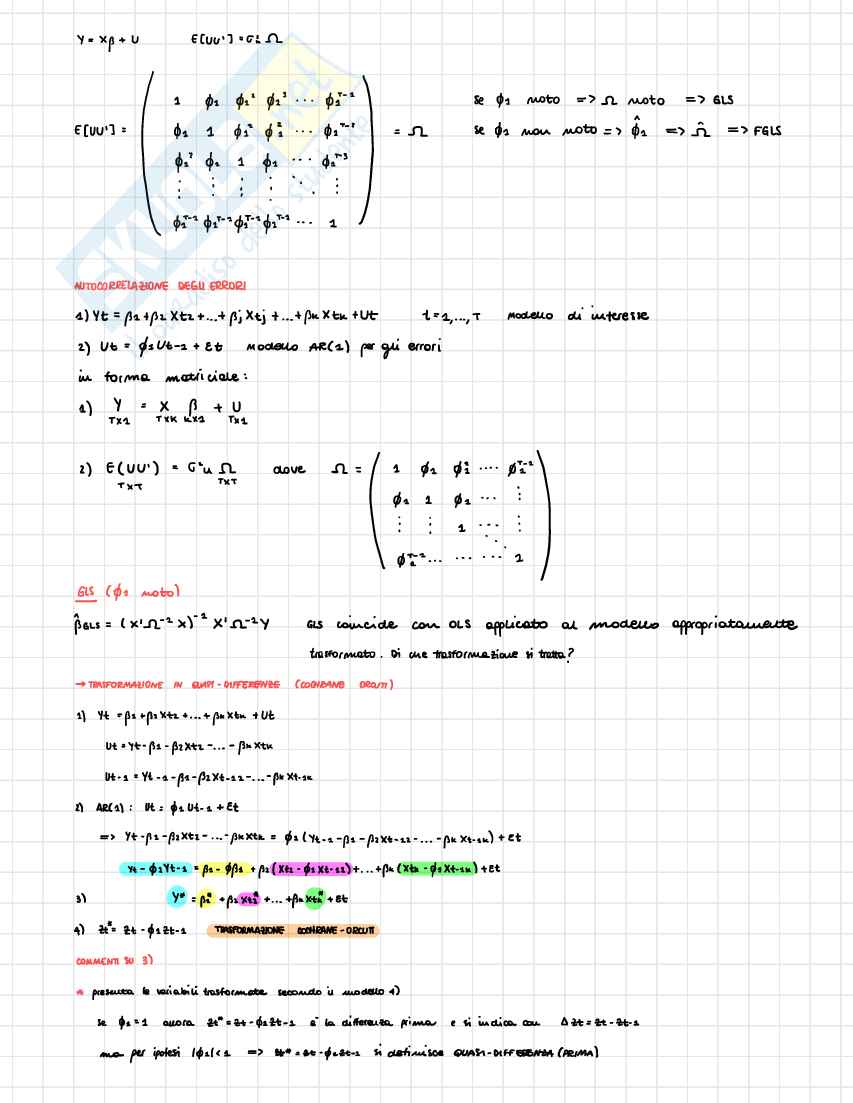 Y = Xβ + U E[UU'] = σ²ᵤ Ω
E[UU'] = ( 1 ϕ₁ ϕ₁² ϕ₁³ ... ϕ₁ᵀ⁻¹ se ϕ₁ noto => Ω noto => GLS
ϕ₁ 1 ϕ₁² ϕ₁² ... ϕ₁ᵀ⁻² ) = Ω se ϕ₁ non noto => ϕ̂₁ => Ω̂ => FGLS
ϕ₁² ϕ₁ 1 ϕ₁ ... ϕ₁ᵀ⁻³
⋮ ⋮ ⋮ ⋮ ⋱ ⋮
ϕ₁ᵀ⁻¹ ϕ₁ᵀ⁻² ϕ₁ᵀ⁻² ϕ₁ᵀ⁻² ... 1
AUTOCORRELAZIONE DEGLI ERRORI
1) Yt = β₁ + β₂ Xt₂ + ... + βj Xtj + ... + βk Xtk + Ut t = 1,...,T modello di interesse
2) Ut = ϕ₁Ut-1 + Et modello AR(1) per gli errori
in forma matriciale:
1) Y = X β + U
Tx1 TxK Kx1 Tx1
2) E(UU') = σ²u Ω dove Ω = ( 1 ϕ₁ ϕ₁² .... ϕ₁ᵀ⁻¹
TxT TxT
ϕ₁ 1 ϕ₁ ... ⋮
⋮ ⋮ 1 ... ⋮
ϕ₁ᵀ⁻¹ ... ... ... 1 )
GLS (ϕ₁ noto)
β̂GLS = (X'Ω⁻¹ X)⁻¹ X'Ω⁻¹Y GLS coincide con OLS applicato al modello appropriatamente
trasformato. Di che trasformazione si tratta?
→ TRASFORMAZIONE IN QUASI-DIFFERENZE (COCHRANE ORCUTT)
1) Yt = β₁ + β₂Xt₂ + ... + βk Xtk + Ut
Ut = Yt - β₁ - β₂Xt₂ - ... - βk Xtk
Ut-1 = Yt-1 - β₁ - β₂Xt-12 - ... - βk Xt-1k
2) AR(1): Ut = ϕ₁Ut-1 + Et
=> Yt - β₁ - β₂Xt₂ - ... - βk Xtk = ϕ₁(Yt-1 - β₁ - β₂Xt-12 - ... - βk Xt-1k) + Et
Yt - ϕ₁Yt-1 = β₁ - ϕβ₁ + β₂(Xt₂ - ϕ₁Xt-12) + ... + βk(Xtk - ϕ₁Xt-1k) + Et
3) Y* = β₁* + β₂ Xt₂* + ... + βk Xtk* + Et
4) Zt* = Zt - ϕ₁Zt-1 TRASFORMAZIONE COCHRANE-ORCUTT
COMMENTI SU 3)
* presenta le variabili trasformate secondo il modello 4)
se ϕ₁ = 1 allora Zt* = Zt - ϕ₁Zt-1 è la differenza prima e si indica con ΔZt = Zt - Zt-1
ma per ipotesi |ϕ₁| < 1 => Zt* = Zt - ϕ₁Zt-1 si definisce QUASI-DIFFERENZA (PRIMA)
SKUOLA.net
il paradiso dello studente